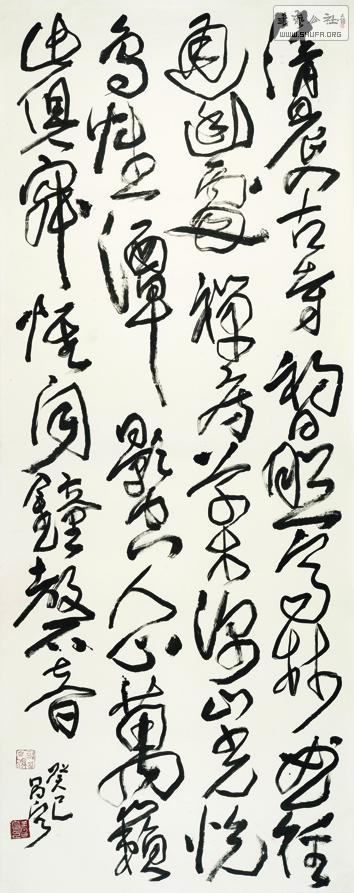 清晨入古寺初日照高林曲徑
通幽處禪房花木深山光悅
鳥性潭影空人心萬籟
此俱寂惟聞鐘磬音
癸巳
WWW.SHUFA.ORG